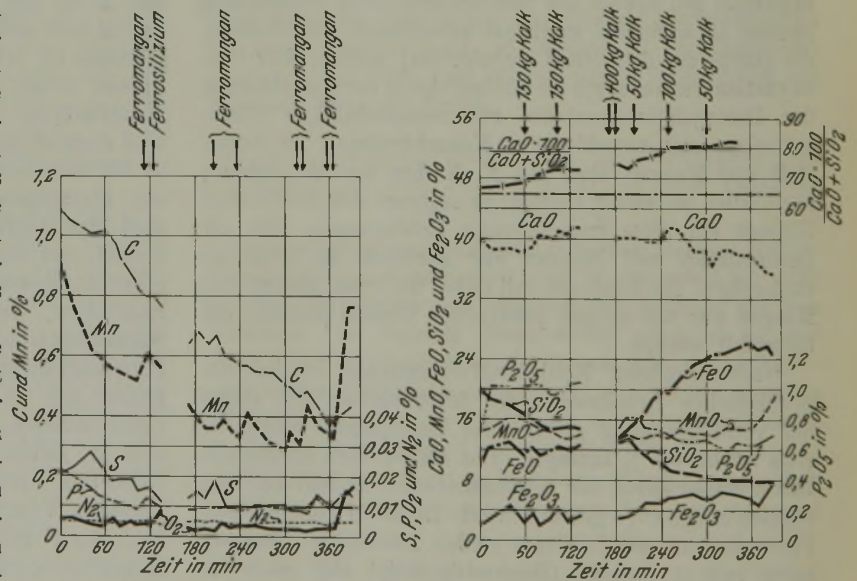 Ferromangan
Ferrosilizium
Ferromangan
Ferromangan
Ferromangan
1,2
1,0
0,8
0,6
0,4
0,2
0
C und Mn in %
C
Mn
C
Mn
S
P
N2
O2
S
N2
0,04
0,03
0,02
0,01
0
S, P, O2 und N2 in %
0 60 120 180 240 300 360
Zeit in min
150 kg Kalk
150 kg Kalk
400 kg Kalk
50 kg Kalk
100 kg Kalk
50 kg Kalk
56
48
40
32
24
16
8
0
CaO, MnO, FeO, SiO2 und Fe2O3 in %
CaO · 100
CaO + SiO2
CaO
CaO
P2O5
SiO2
MnO
FeO
Fe2O3
FeO
MnO
SiO2
P2O5
Fe2O3
90
80
70
60
CaO · 100
CaO + SiO2
1,2
1,0
0,8
0,6
0,4
0,2
0
P2O5 in %
0 60 120 180 240 300 360
Zeit in min